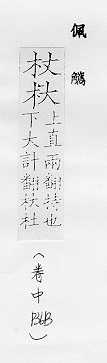 佩觿
杖杕
上直兩翻持也
下大計翻杕杜
（卷中 B6B）